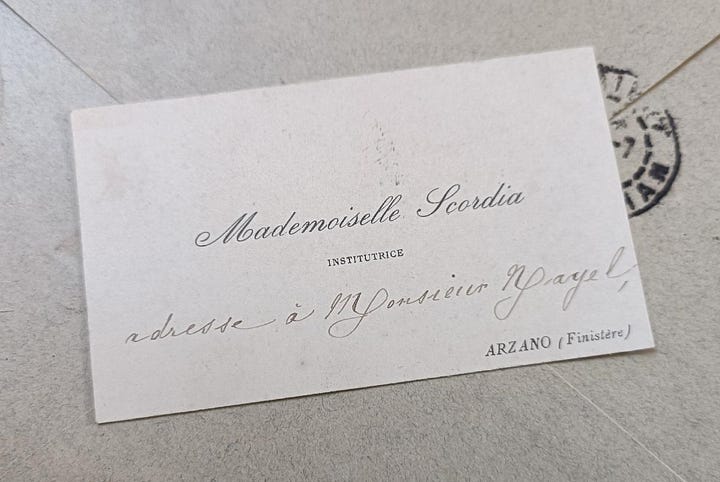 Mademoiselle Scordia
INSTITUTRICE
adresse à Monsieur Nayel,
ARZANO (Finistère)